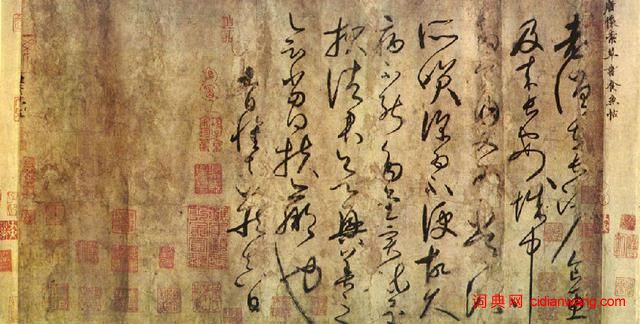 唐懷素草書食魚帖
老僧在長沙食魚
及來長安城中
多食肉又為常流
所笑深為不便故久
病不能多書實疏還
報諸君欲興善之
會當得扶羸也
日懷素藏真白
词典网 cidianwang.com